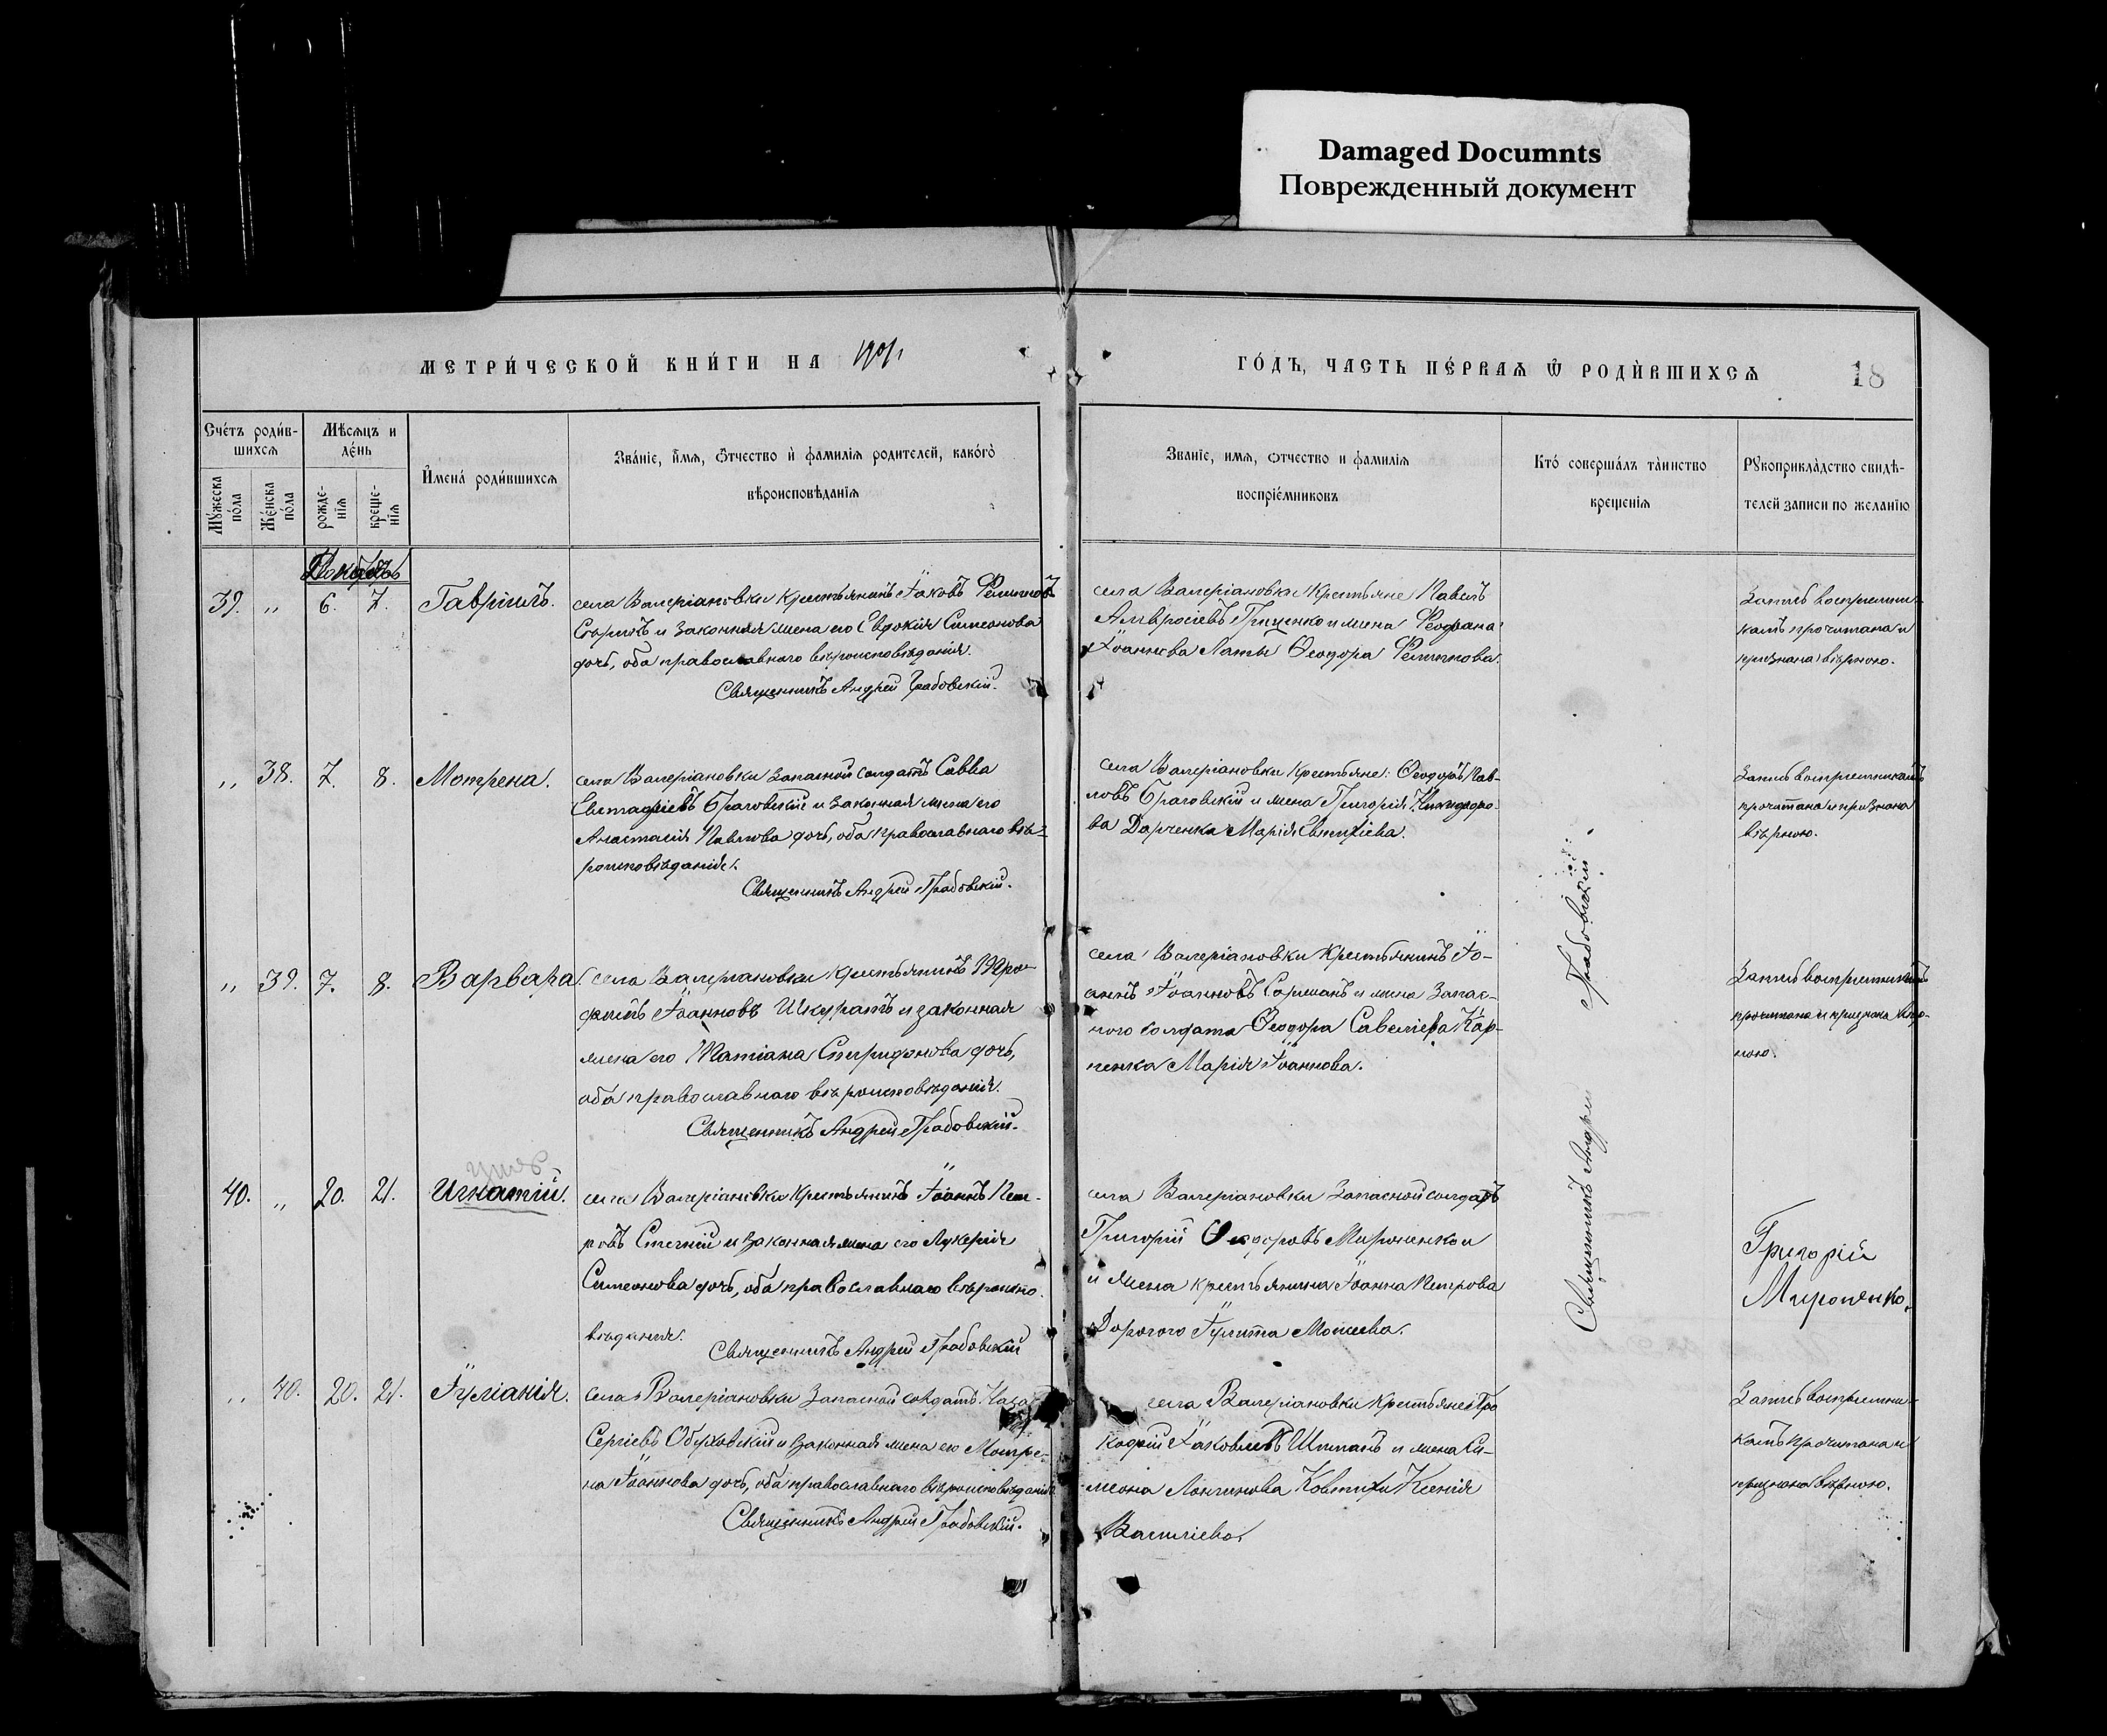 Damaged Documnts
Поврежденный документ
МЕТРИ́ЧЕСКОЙ КНИ́ГИ НА 1901
ГО́ДЪ, ЧАСТЬ ПЕ́РВАѦ Ѿ РОДИ́ВШИХСѦ
18
Счётъ роди́в-
шихсѧ
Мѣсѧцъ и
де́нь
Му́жеска
по́ла
Же́нска
по́ла
рожде-
нїѧ
креще-
нїѧ
И́мена́ роди́вшихсѧ
Зва́нїе, и́мѧ, ѻ́тчество и҆ фамилїѧ родителей, како́го̀
вѣроисповѣданїѧ
Званїе, имѧ, ѻтчество и фамилїѧ
воспрїе́мниковъ
Кто́ совершáлъ тáинство
крещенїѧ
Рꙋкоприкла́дство свидѣ-
телей записи по желанїю
39. " 6. 7. Гавріилъ.
села Валеріановки крестьянинъ Іаковъ Филиповъ
и законная жена его Евдокія Симеонова
дочь, оба православнаго вѣроисповѣданія.
Священникъ Андрей Грабовскій.
села Валеріановки крестьяне Павелъ
Амвросіевъ Гриценко и жена
Іоаннова Феодора Филипова.
Запись воспріемни-
камъ прочитана и
признана вѣрною.
" 38. 7. 8. Мотрена.
села Валеріановки запасной солдатъ Савва
Евстафіевъ Браговскій и законная жена его
Анастасія Павлова дочь, оба православнаго вѣ-
роисповѣданія.
Священникъ Андрей Грабовскій.
села Валеріановки крестьяне: Ѳеодоръ Пав-
ловъ Браговскій и жена Григорія Никидоро-
ва Дарченка Марія Евтихіева.
Запись воспріемникамъ
прочитана и признана
вѣрною.
" 39. 7. 8. Варвара.
села Валеріановки крестьянинъ Тро-
фимъ Іоанновъ Шкуратъ и законная
жена его Татіана Спиридонова дочь,
оба православнаго вѣроисповѣданія.
Священникъ Андрей Грабовскій.
села Валеріановки крестьянинъ Іо-
аннъ Іоанновъ и жена запас-
ного солдата Ѳеодора Савеліева Кар-
пенка Марія Іоаннова.
Запись воспріемникамъ
прочитана и признана вѣр-
ною.
умер
40. " 20. 21. Игнатій.
села Валеріановки крестьянинъ Іоаннъ Пет-
ровъ и законная жена его Лукерія
Симеонова дочь, оба православнаго вѣроиспо-
вѣданія.
Священникъ Андрей Грабовскій
села Валеріановки запасной солдатъ
Григорій Ѳеодоровъ Мироненко и
и жена крестьянина Іоанна Петрова
Дорогого Іулита Моисеева.
Григорій
Мироненко.
" 40. 20. 21. Іуліанія.
села Валеріановки запасной солдатъ
Сергіевъ Обуховскій и законная жена его Мотре-
на Іоаннова дочь, оба православнаго вѣроисповѣданія.
Священникъ Андрей Грабовскій.
села Валеріановки крестьяне:
Іаковлевъ и жена Си-
меона Лонгинова Ксенія
Василіева.
Запись воспріемни-
камъ прочитана и
признана вѣрною.
Священникъ Андрей Грабовскій